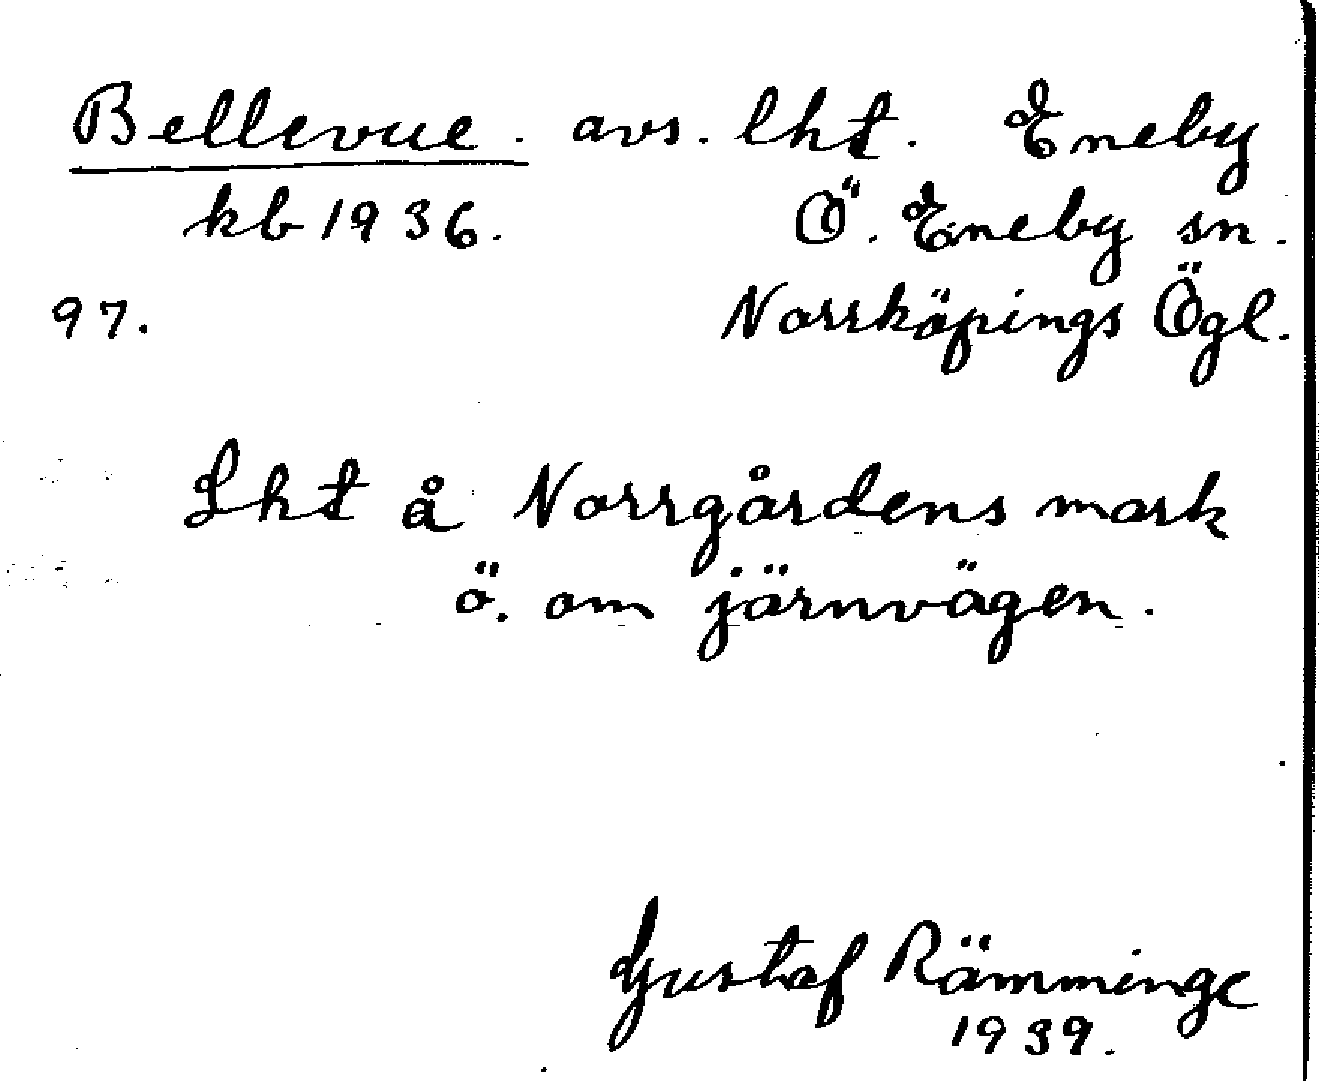 Bellevue. avs. lht. Eneby
kb 1936. Ö. Eneby sn.
97. Norrköpings Ögl.
Lht å Norrgårdens mark
ö. om järnvägen.
Gustaf Rämminge
1939.